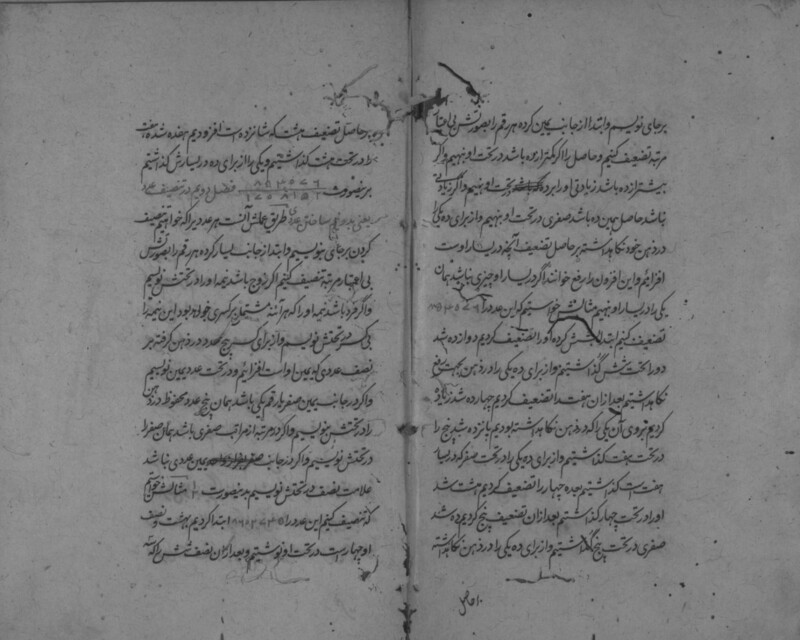 بر جای نویسیم و ابتدا از جانب یمین کرده هر رقم را بصورتش بی اعتبار
مرتبه تضعیف کنیم و حاصل را اگر کمتر از ده باشد در تحت او نهیم و اگر
بیشتر از ده باشد زیادتی او را بر ده در تحت او نهیم و اگر زیادتی
نباشد حاصل همین ده باشد صفری در تحت او نهیم و از برای ده یکی
در ذهن خود نگاه داشته بر حاصل تضعیف آنچه در یسار اوست
افزائیم و این افزودن را رفع خوانند اگر در یسار او چیزی نباشد همان
یکی را در یسار او نهیم مثالش خواستیم که این عدد را
تضعیف کنیم ابتدا شش کرده او را تضعیف کردیم دوازده شد
دو را تحت شش گذاشتیم و از برای ده یکی را در ذهن بجهت رفع
نگاه داشتیم بعد از آن هفت را تضعیف کردیم چهارده شد زیاده
کردیم بروی آن یکی را که در ذهن نگاه داشته بودیم پانزده شد پنج را
در تحت هفت گذاشتیم و از برای ده یکی را در تحت صفر که در یسار
هفت است گذاشتیم بعده چهار را تضعیف کردیم هشت شد
او را در تحت چهار گذاشتیم بعد از آن تضعیف پنج کردیم ده شد
صفری در تحت پنج گذاشتیم و از برای ده یکی را در ذهن نگاه داشته
بر حاصل تضعیف هشت که شانزده است افزودیم هفده شد هفت
را در تحت هشت گذاشتیم و یکی را از برای ده در یسارش گذاشتیم
برینصورت فصل دویم در تنصیف
طریق عملش آنست هر عدد را که خواهیم تنصیف
کردن بر جای بنویسیم و ابتدا از جانب یسار کرده هر رقم را بصورتش
بی اعتبار مرتبه تنصیف کنیم اگر زوج باشد نیمه او را در تحتش نویسیم
و اگر فرد باشد نیمه او را که هر آئنه مشتمل بر کسری خواهد بود این نیمه را
بی کسر تحتش نویسیم و از برای کسر پنج عدد در ذهن گرفته بر
نصف عددی که یمین او است افزائیم و در تحت عدد یمین نویسیم
و اگر در جانب یمین صفر یا رقم یکی باشد همان پنج عدد محفوظ در ذهن
را در تحتش بنویسیم و اگر در مرتبه از مراتب صفری باشد همان صفر را
در تحتش نویسیم و اگر در جانب یمین عددی نباشد
علامت نصف در تحتش نویسیم بدینصورت مثالش خواستیم
که تنصیف کنیم این عدد را ابتدا کردیم بهشت و نصف
او چهار است در تحت او نوشتیم و بعد از آن نصف شش را که سه